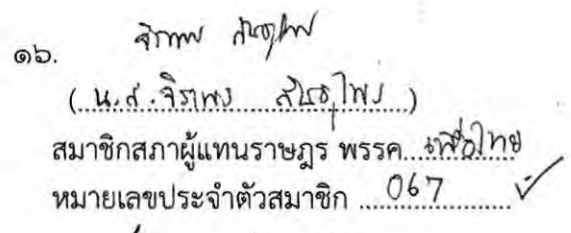 ๑๖. จิราพร สินธุไพร
(น.ส.จิราพร สินธุไพร)
สมาชิกสภาผู้แทนราษฎร พรรค เพื่อไทย
หมายเลขประจำตัวสมาชิก 067